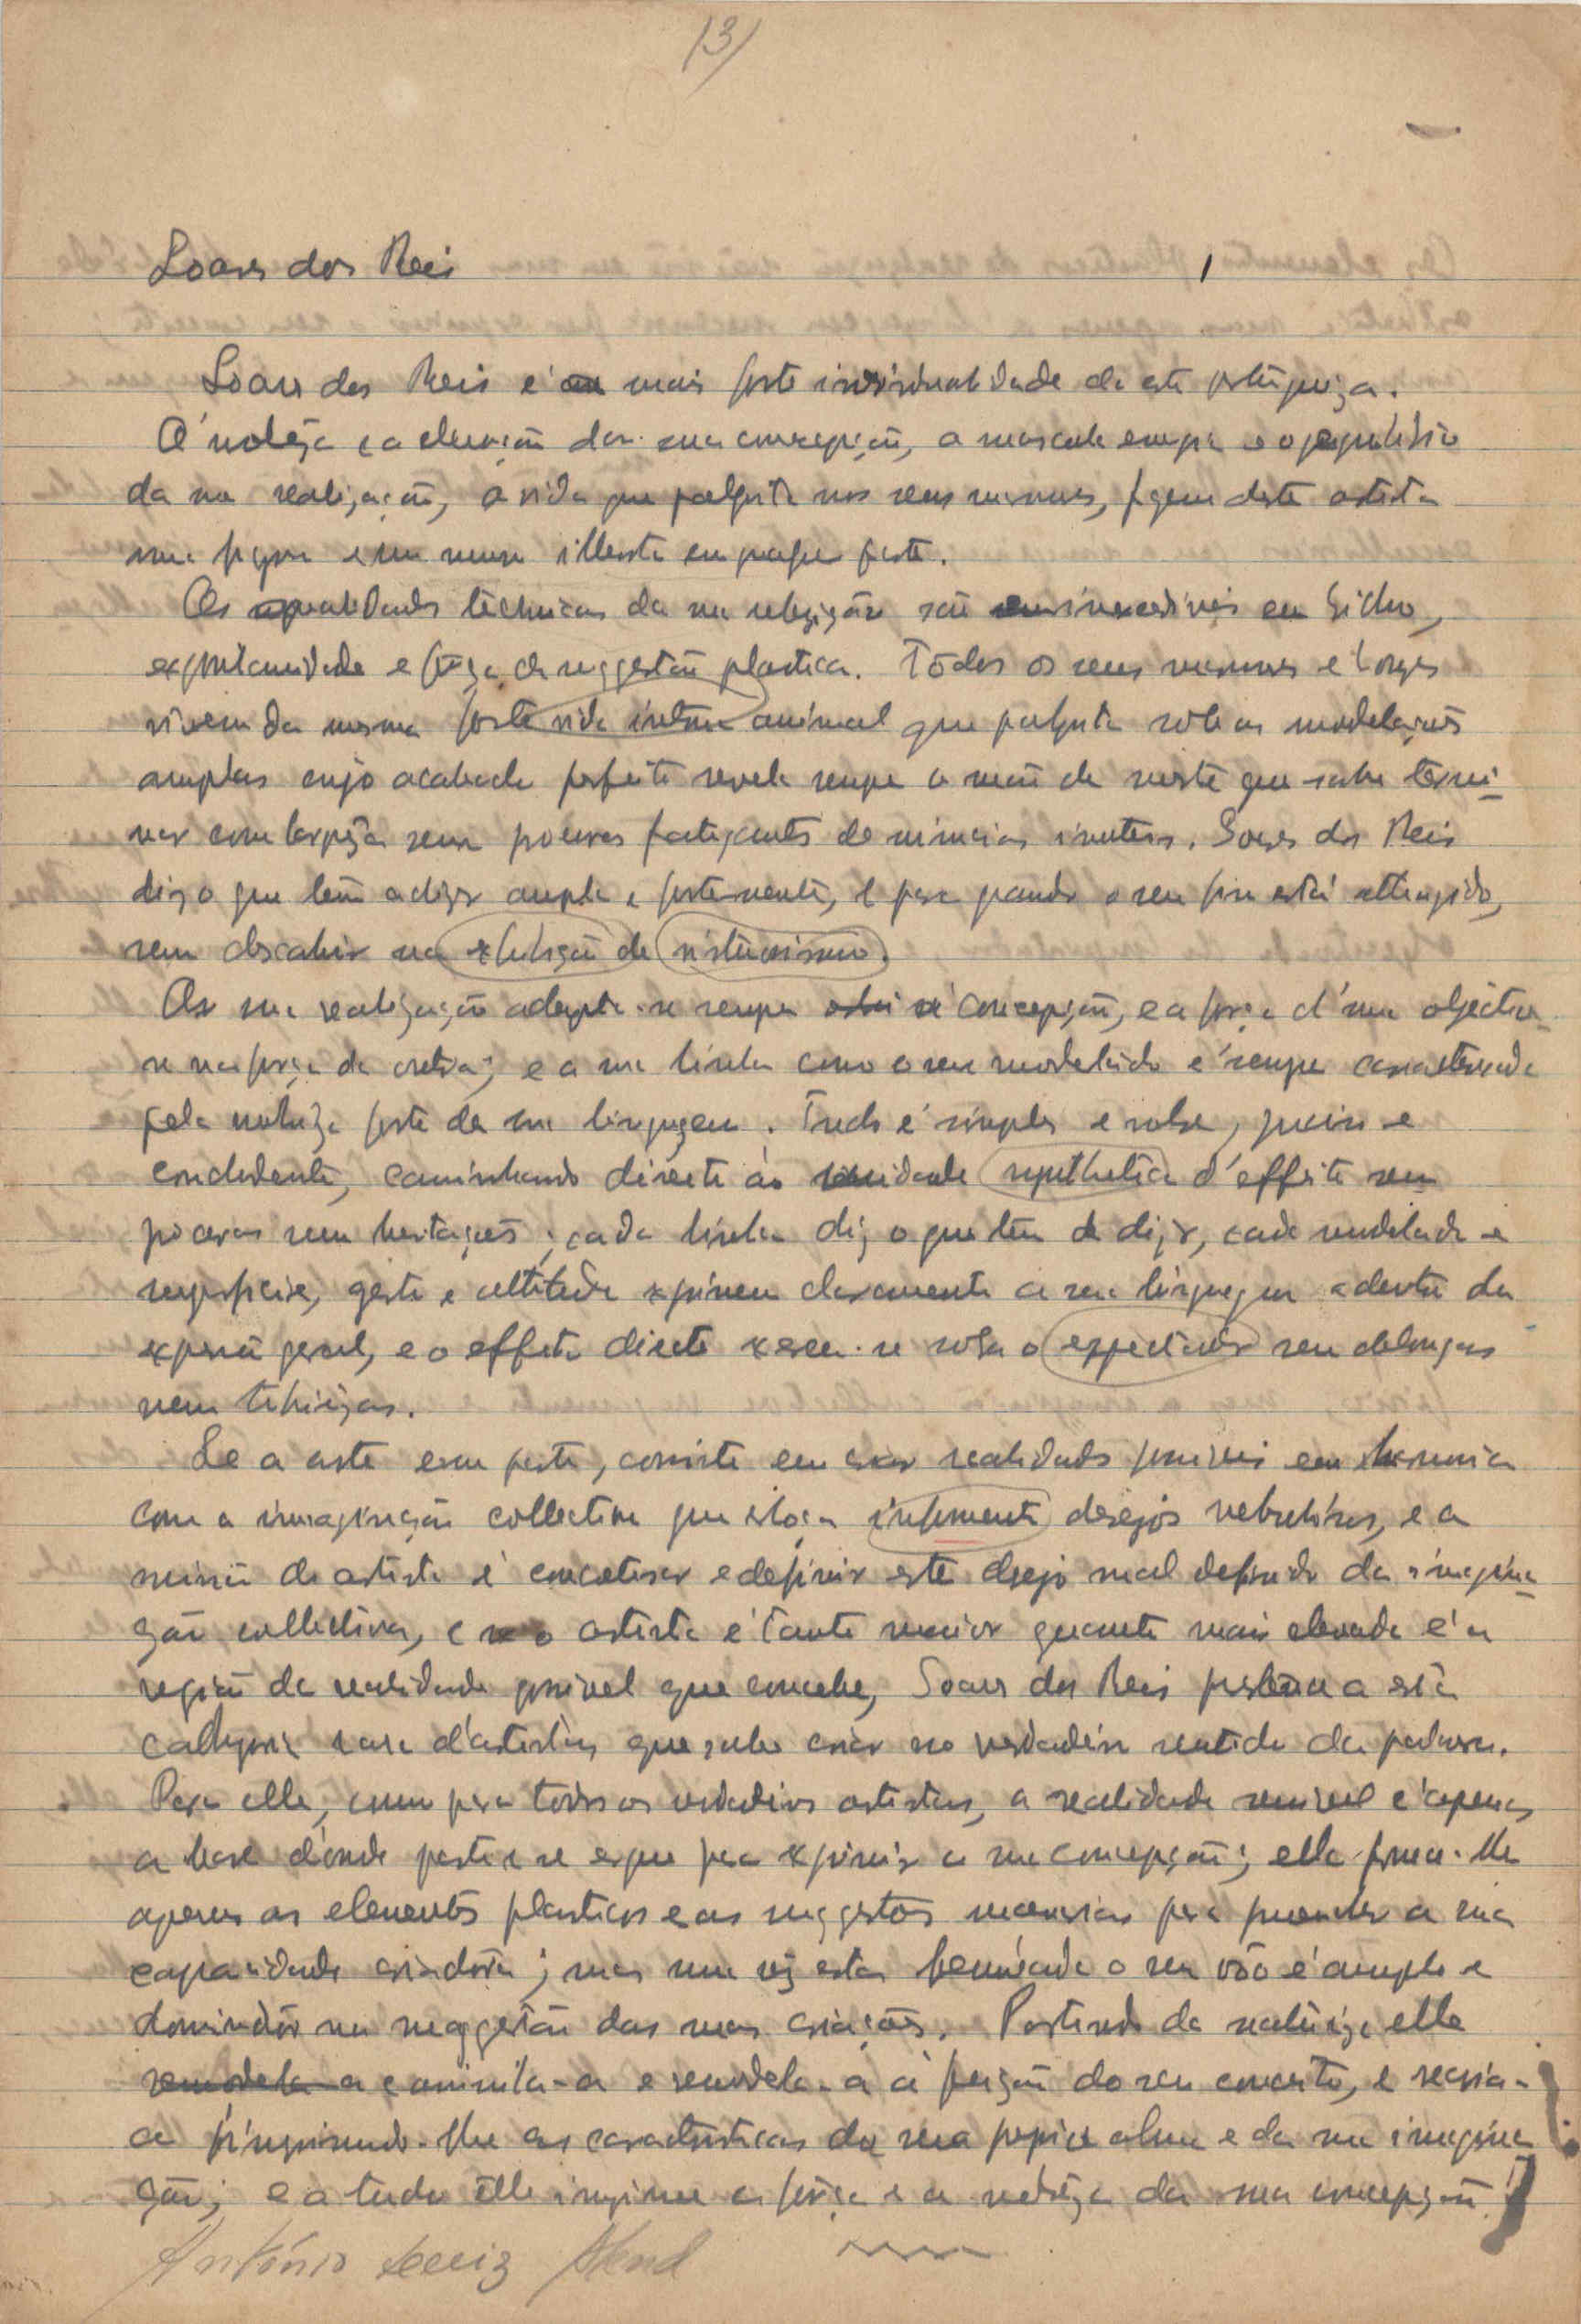 13)
Soares dos Reis
1
Soares dos Reis é a mais forte individualidade da arte portugueza.
A nobreza e a elevação da sua concepção, a mascula energia e o equilibrio
da sua realização, a vida que palpita nos seus marmores, fazem deste artista
uma figura e um nome illustre em qualquer parte.
As qualidades technicas da sua são em
espontaneidade e força de suggestão plastica. Todos os seus marmores e bronzes
vivem da mesma forte vida interna animal que palpita sob as modelações
amplas cujo acabado perfeito revela sempre a mão de mestre que sabe termi-
nar com largueza sem poeiras fatigantes de minucias inuteis. Soares dos Reis
diz o que tem a dizer ampla e fortemente, e para quando o seu fim está attingido,
sem descahir na exhibição de virtuosismo.
A sua realização adapta-se sempre á concepção, e a força d'uma objectiva-
se na força da outra; e a sua linha como o seu modelado é sempre caracterisada
pela nobreza forte da sua linguagem. Tudo é simples e sobrio, preciso e
concludente, caminhando direito á unidade synthetica d'effeito sem
poeiras sem hesitações; cada linha diz o que tem de dizer, cada modelado e
superficie, gesto e attitude exprimem claramente a sua linguagem adentro da
expressão geral, e o effeito directo exerce-se sobre o espectador sem delongas
nem tibiezas.
Se a arte em parte, consiste em crear realidades possiveis em harmonia
com a imaginação collectiva que esboça desejos nebulosos, e a
missão do artista é concretisar e definir este desejo mal definido da imagina-
ção collectiva, e se o artista é tanto maior quanto mais elevada é a
região da realidade possivel que concebe, Soares dos Reis pertence a esta
cathegoria rara d'artistas que sabe criar no verdadeiro sentido da palavra.
Para elle, como para todos os verdadeiros artistas, a realidade sensivel é apenas
a base d'onde parte e se ergue para exprimir a sua concepção; ella fornece-lhe
apenas os elementos plasticos e as suggestões necessarias para a sua
capacidade criadora; mas uma vez esta o seu vôo é amplo e
dominador na suggestão das suas criações. Partindo da natureza elle
remodela-a assimila-a e remodela-a á feição do seu conceito, e recria-
a imprimindo-lhe as caracteristicas da sua propria alma e da sua imagina
ção; e a tudo elle imprime a força e a nobreza da sua concepção
António Luiz